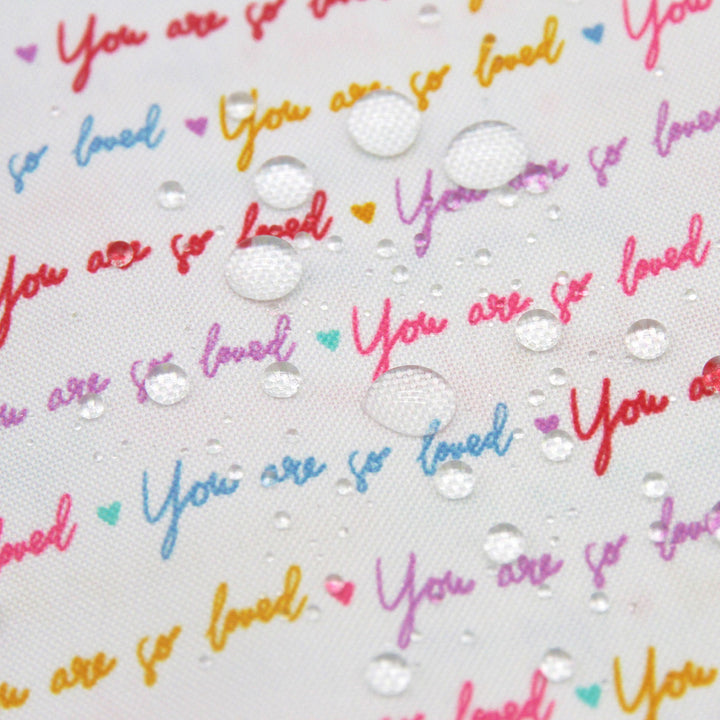 You are so
so loved You are so loved You
You are so loved You are so loved
You are so loved You are so loved
loved You are so loved You are
You are so loved You are so loved
are so loved You